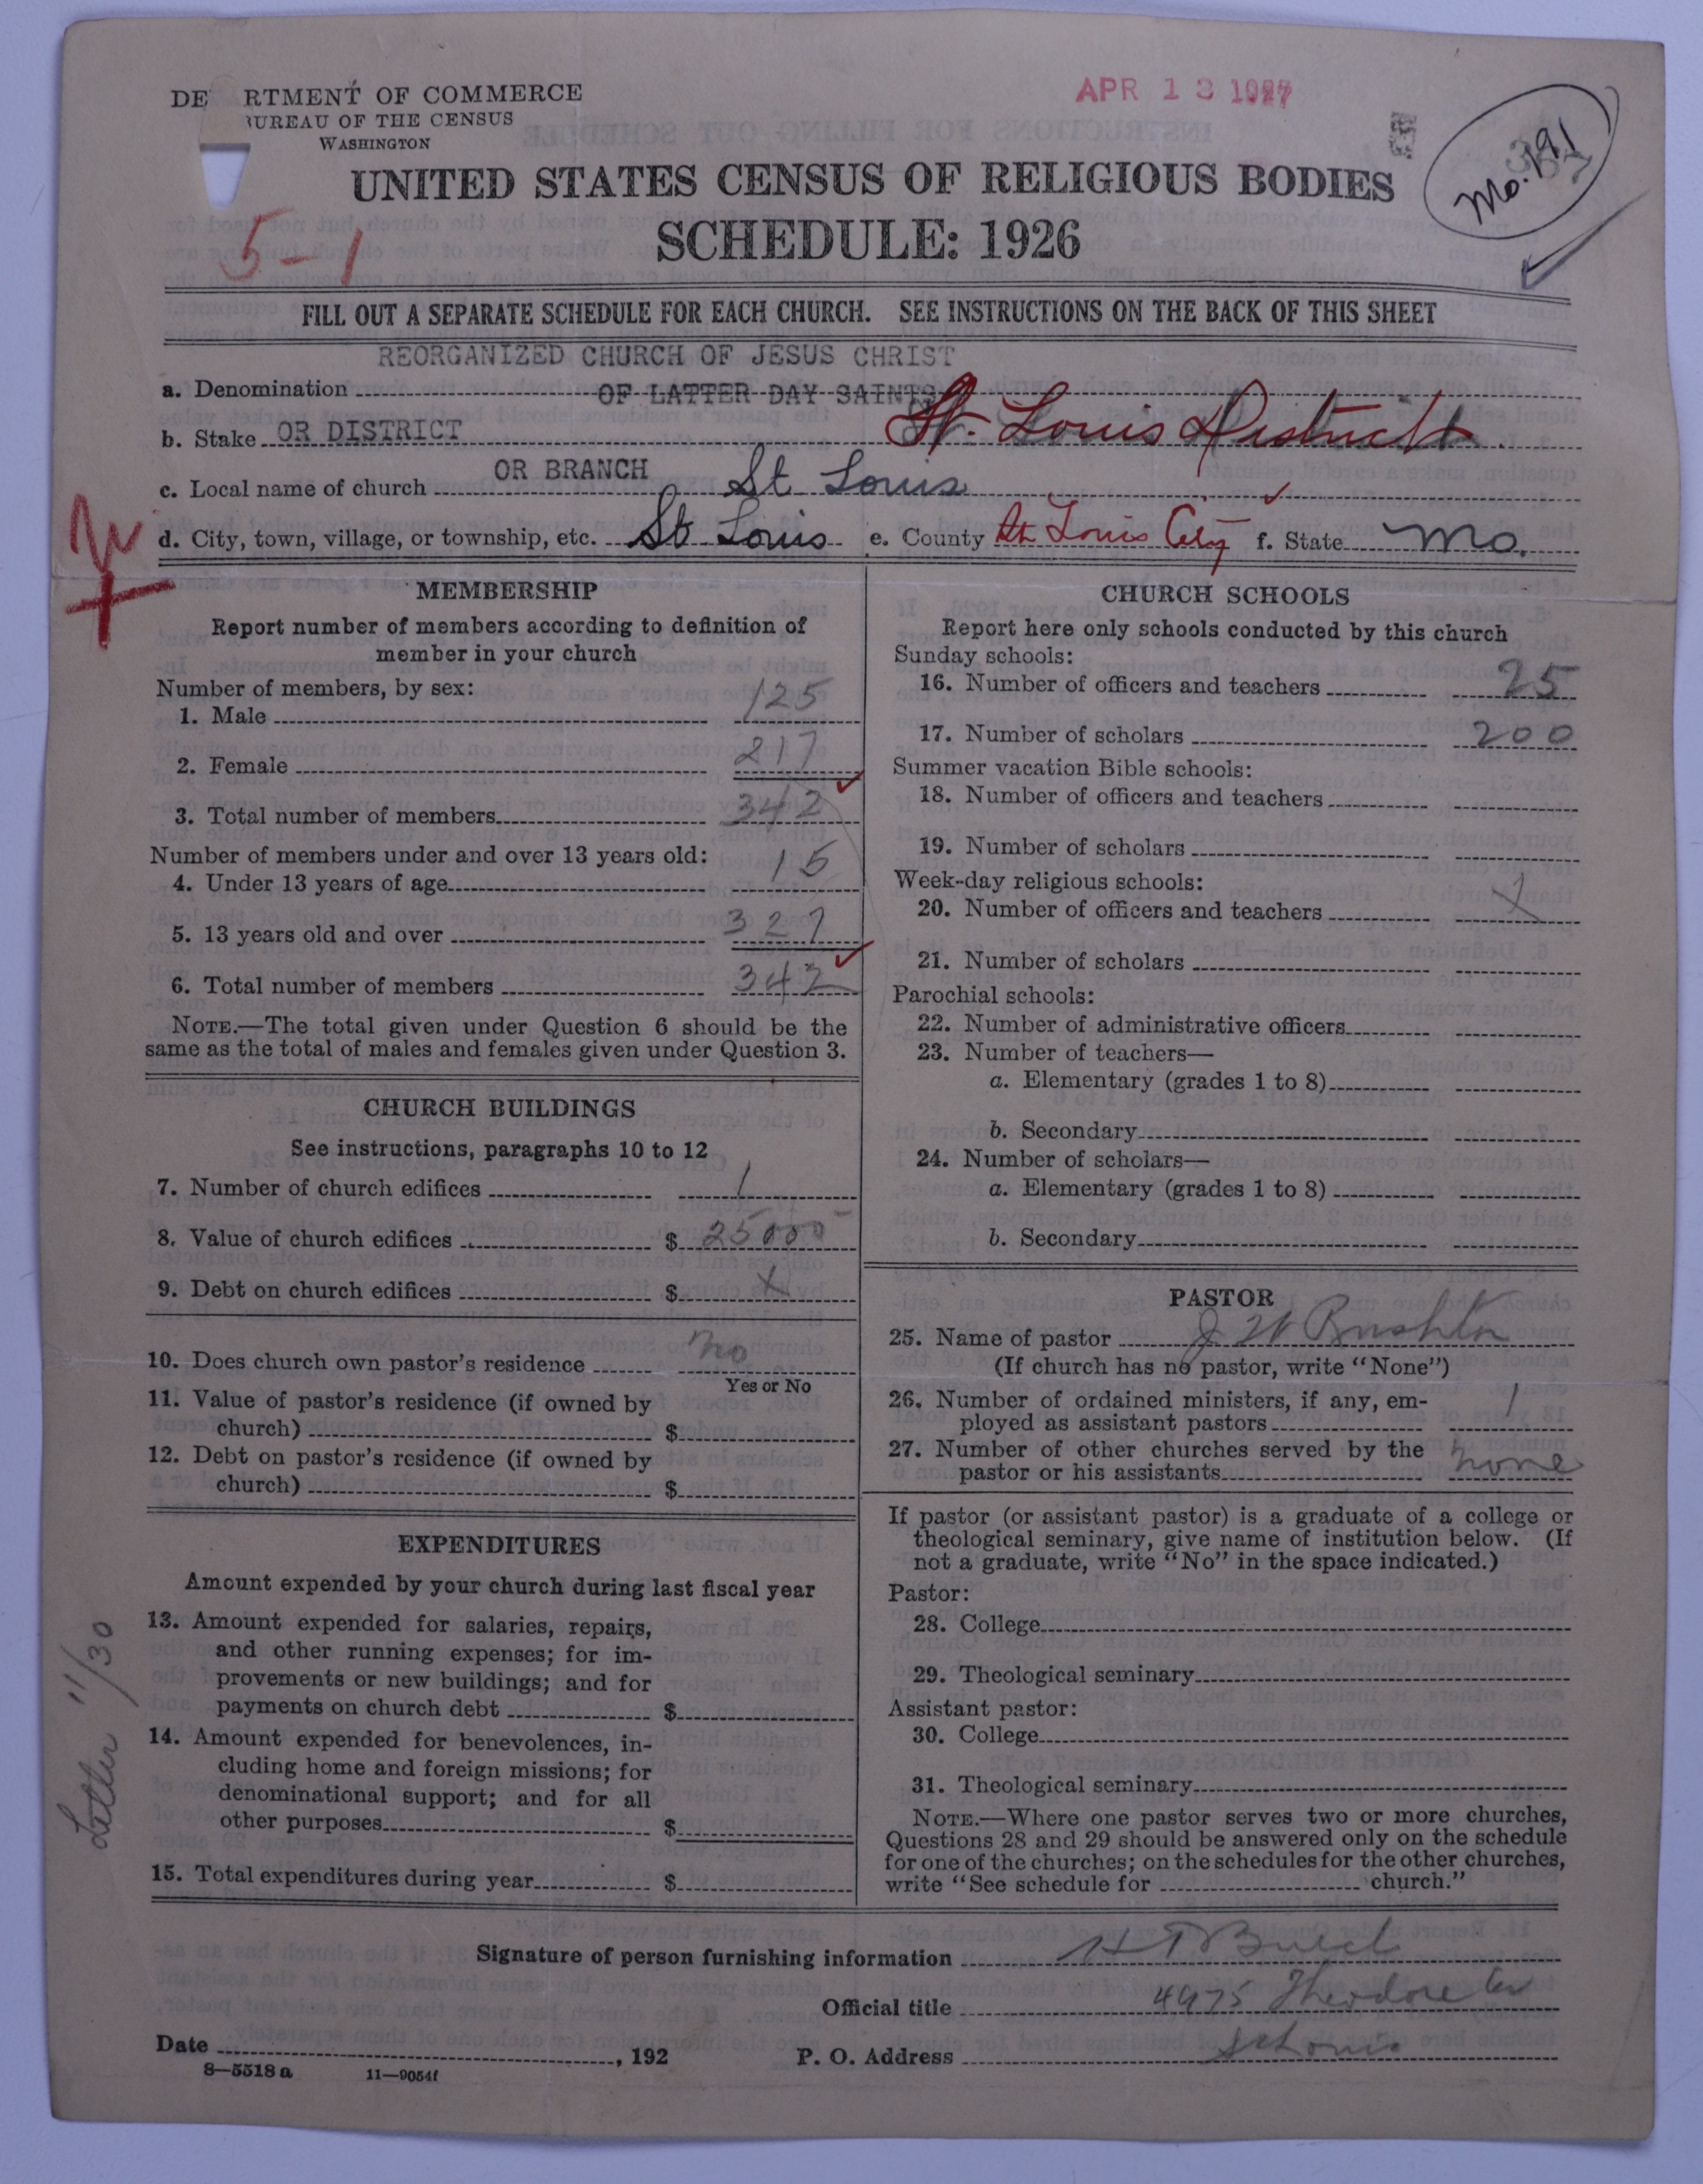 DE RTMENT OF COMMERCE
UREAU OF THE CENSUS
WASHINGTON
APR 13 1927
Mo. 191
UNITED STATES CENSUS OF RELIGIOUS BODIES
SCHEDULE: 1926
5-1
FILL OUT A SEPARATE SCHEDULE FOR EACH CHURCH. SEE INSTRUCTIONS ON THE BACK OF THIS SHEET
REORGANIZED CHURCH OF JESUS CHRIST
a. Denomination OF LATTER DAY SAINTS
b. Stake OR DISTRICT St. Louis District
OR BRANCH
c. Local name of church St Louis
d. City, town, village, or township, etc. St Louis e. County St Louis City f. State Mo.
MEMBERSHIP
Report number of members according to definition of
member in your church
Number of members, by sex:
1. Male 125
2. Female 217
3. Total number of members 342
Number of members under and over 13 years old:
4. Under 13 years of age 15
5. 13 years old and over 327
6. Total number of members 342
NOTE.—The total given under Question 6 should be the
same as the total of males and females given under Question 3.
CHURCH BUILDINGS
See instructions, paragraphs 10 to 12
7. Number of church edifices 1
8. Value of church edifices $ 25000
9. Debt on church edifices $ x
10. Does church own pastor's residence no
Yes or No
11. Value of pastor's residence (if owned by
church) $
12. Debt on pastor's residence (if owned by
church) $
EXPENDITURES
Amount expended by your church during last fiscal year
13. Amount expended for salaries, repairs,
and other running expenses; for im-
provements or new buildings; and for
payments on church debt $
14. Amount expended for benevolences, in-
cluding home and foreign missions; for
denominational support; and for all
other purposes $
15. Total expenditures during year $
Letter 11/30
CHURCH SCHOOLS
Report here only schools conducted by this church
Sunday schools:
16. Number of officers and teachers 25
17. Number of scholars 200
Summer vacation Bible schools:
18. Number of officers and teachers
19. Number of scholars
Week-day religious schools:
20. Number of officers and teachers x
21. Number of scholars
Parochial schools:
22. Number of administrative officers
23. Number of teachers—
a. Elementary (grades 1 to 8)
b. Secondary
24. Number of scholars—
a. Elementary (grades 1 to 8)
b. Secondary
PASTOR
25. Name of pastor J W Rushton
(If church has no pastor, write "None")
26. Number of ordained ministers, if any, em-
ployed as assistant pastors 1
27. Number of other churches served by the
pastor or his assistants none
If pastor (or assistant pastor) is a graduate of a college or
theological seminary, give name of institution below. (If
not a graduate, write "No" in the space indicated.)
Pastor:
28. College
29. Theological seminary
Assistant pastor:
30. College
31. Theological seminary
NOTE.—Where one pastor serves two or more churches,
Questions 28 and 29 should be answered only on the schedule
for one of the churches; on the schedules for the other churches,
write "See schedule for church."
Signature of person furnishing information
Official title 4975 Theodore Av
Date , 192 P. O. Address St Louis
8—5518 a 11—9054f